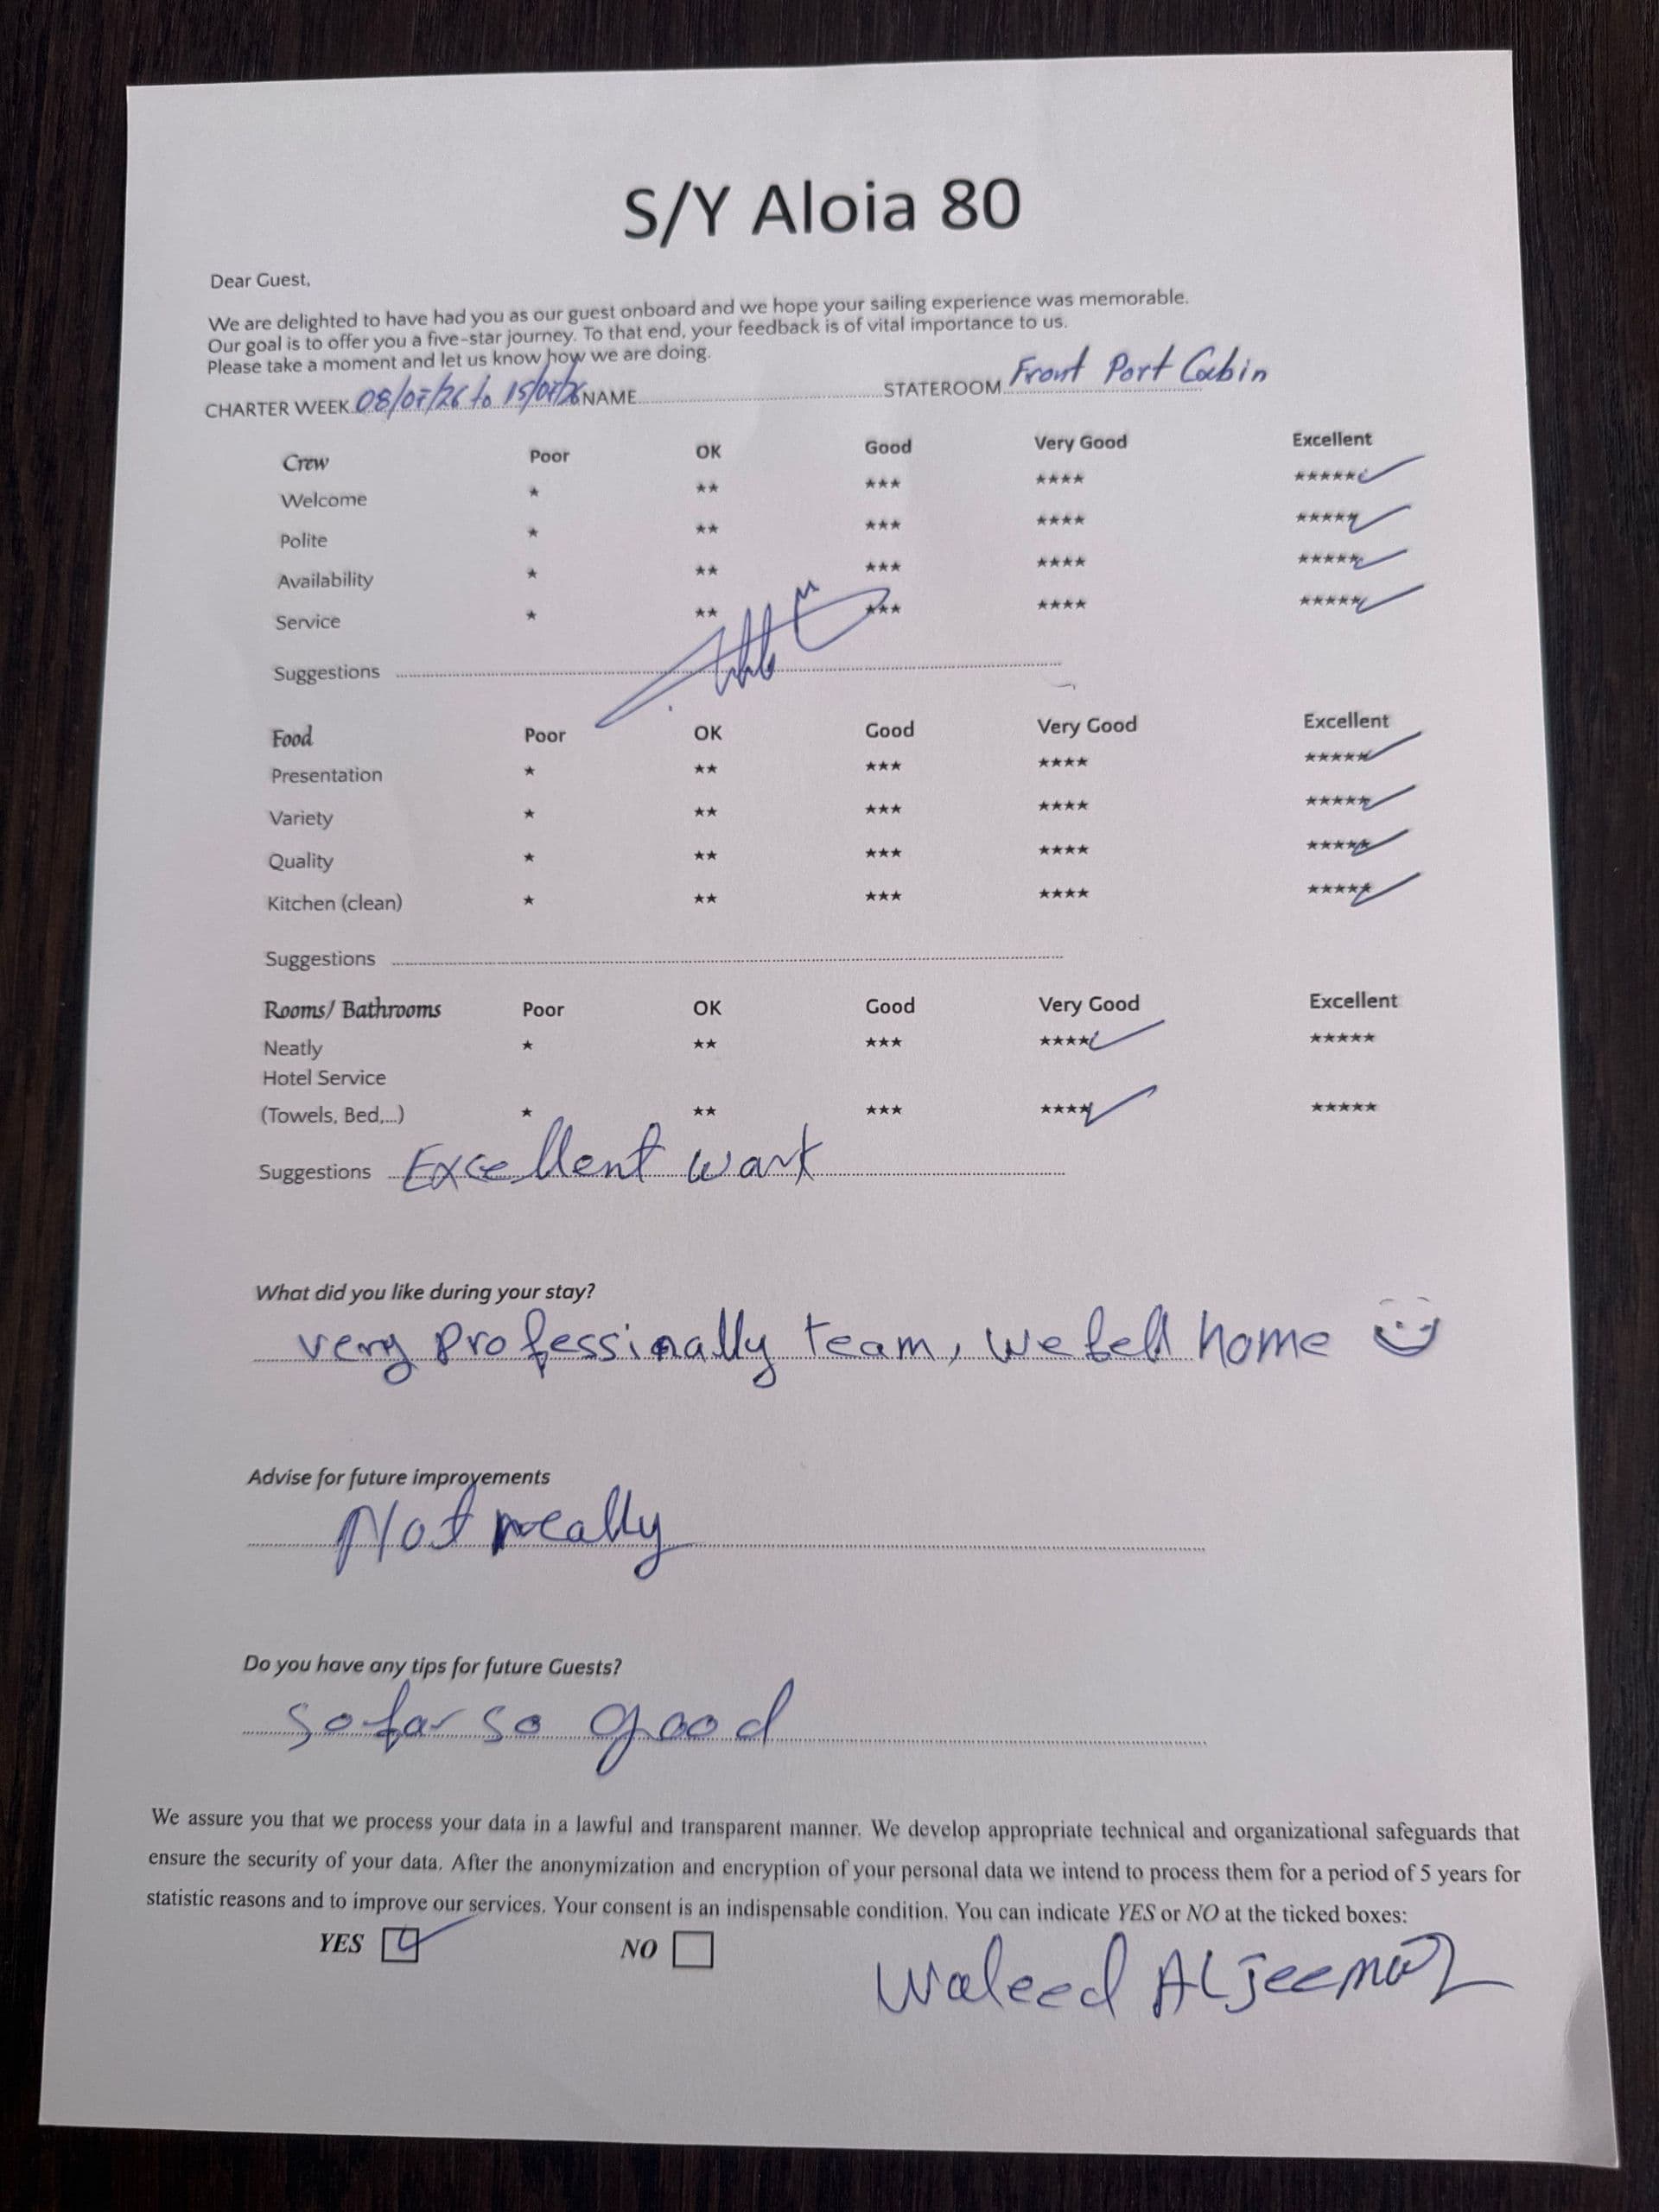 S/Y Aloia 80
Dear Guest,
We are delighted to have had you as our guest onboard and we hope your sailing experience was memorable.
Our goal is to offer you a five-star journey. To that end, your feedback is of vital importance to us.
Please take a moment and let us know how we are doing.
CHARTER WEEK 08/07/26 to 15/07/26 NAME STATEROOM Front Port Cabin
Crew Poor OK Good Very Good Excellent
Welcome * ** *** **** *****
Polite * ** *** **** *****
Availability * ** *** **** *****
Service * ** *** **** *****
Suggestions
Food Poor OK Good Very Good Excellent
Presentation * ** *** **** *****
Variety * ** *** **** *****
Quality * ** *** **** *****
Kitchen (clean) * ** *** **** *****
Suggestions
Rooms/ Bathrooms Poor OK Good Very Good Excellent
Neatly * ** *** **** *****
Hotel Service
(Towels, Bed,...) * ** *** **** *****
Suggestions Excellent work
What did you like during your stay?
very professinally team, we fell home
Advise for future improvements
Not really
Do you have any tips for future Guests?
so far so good
We assure you that we process your data in a lawful and transparent manner. We develop appropriate technical and organizational safeguards that
ensure the security of your data. After the anonymization and encryption of your personal data we intend to process them for a period of 5 years for
statistic reasons and to improve our services. Your consent is an indispensable condition. You can indicate YES or NO at the ticked boxes:
YES NO
Waleed